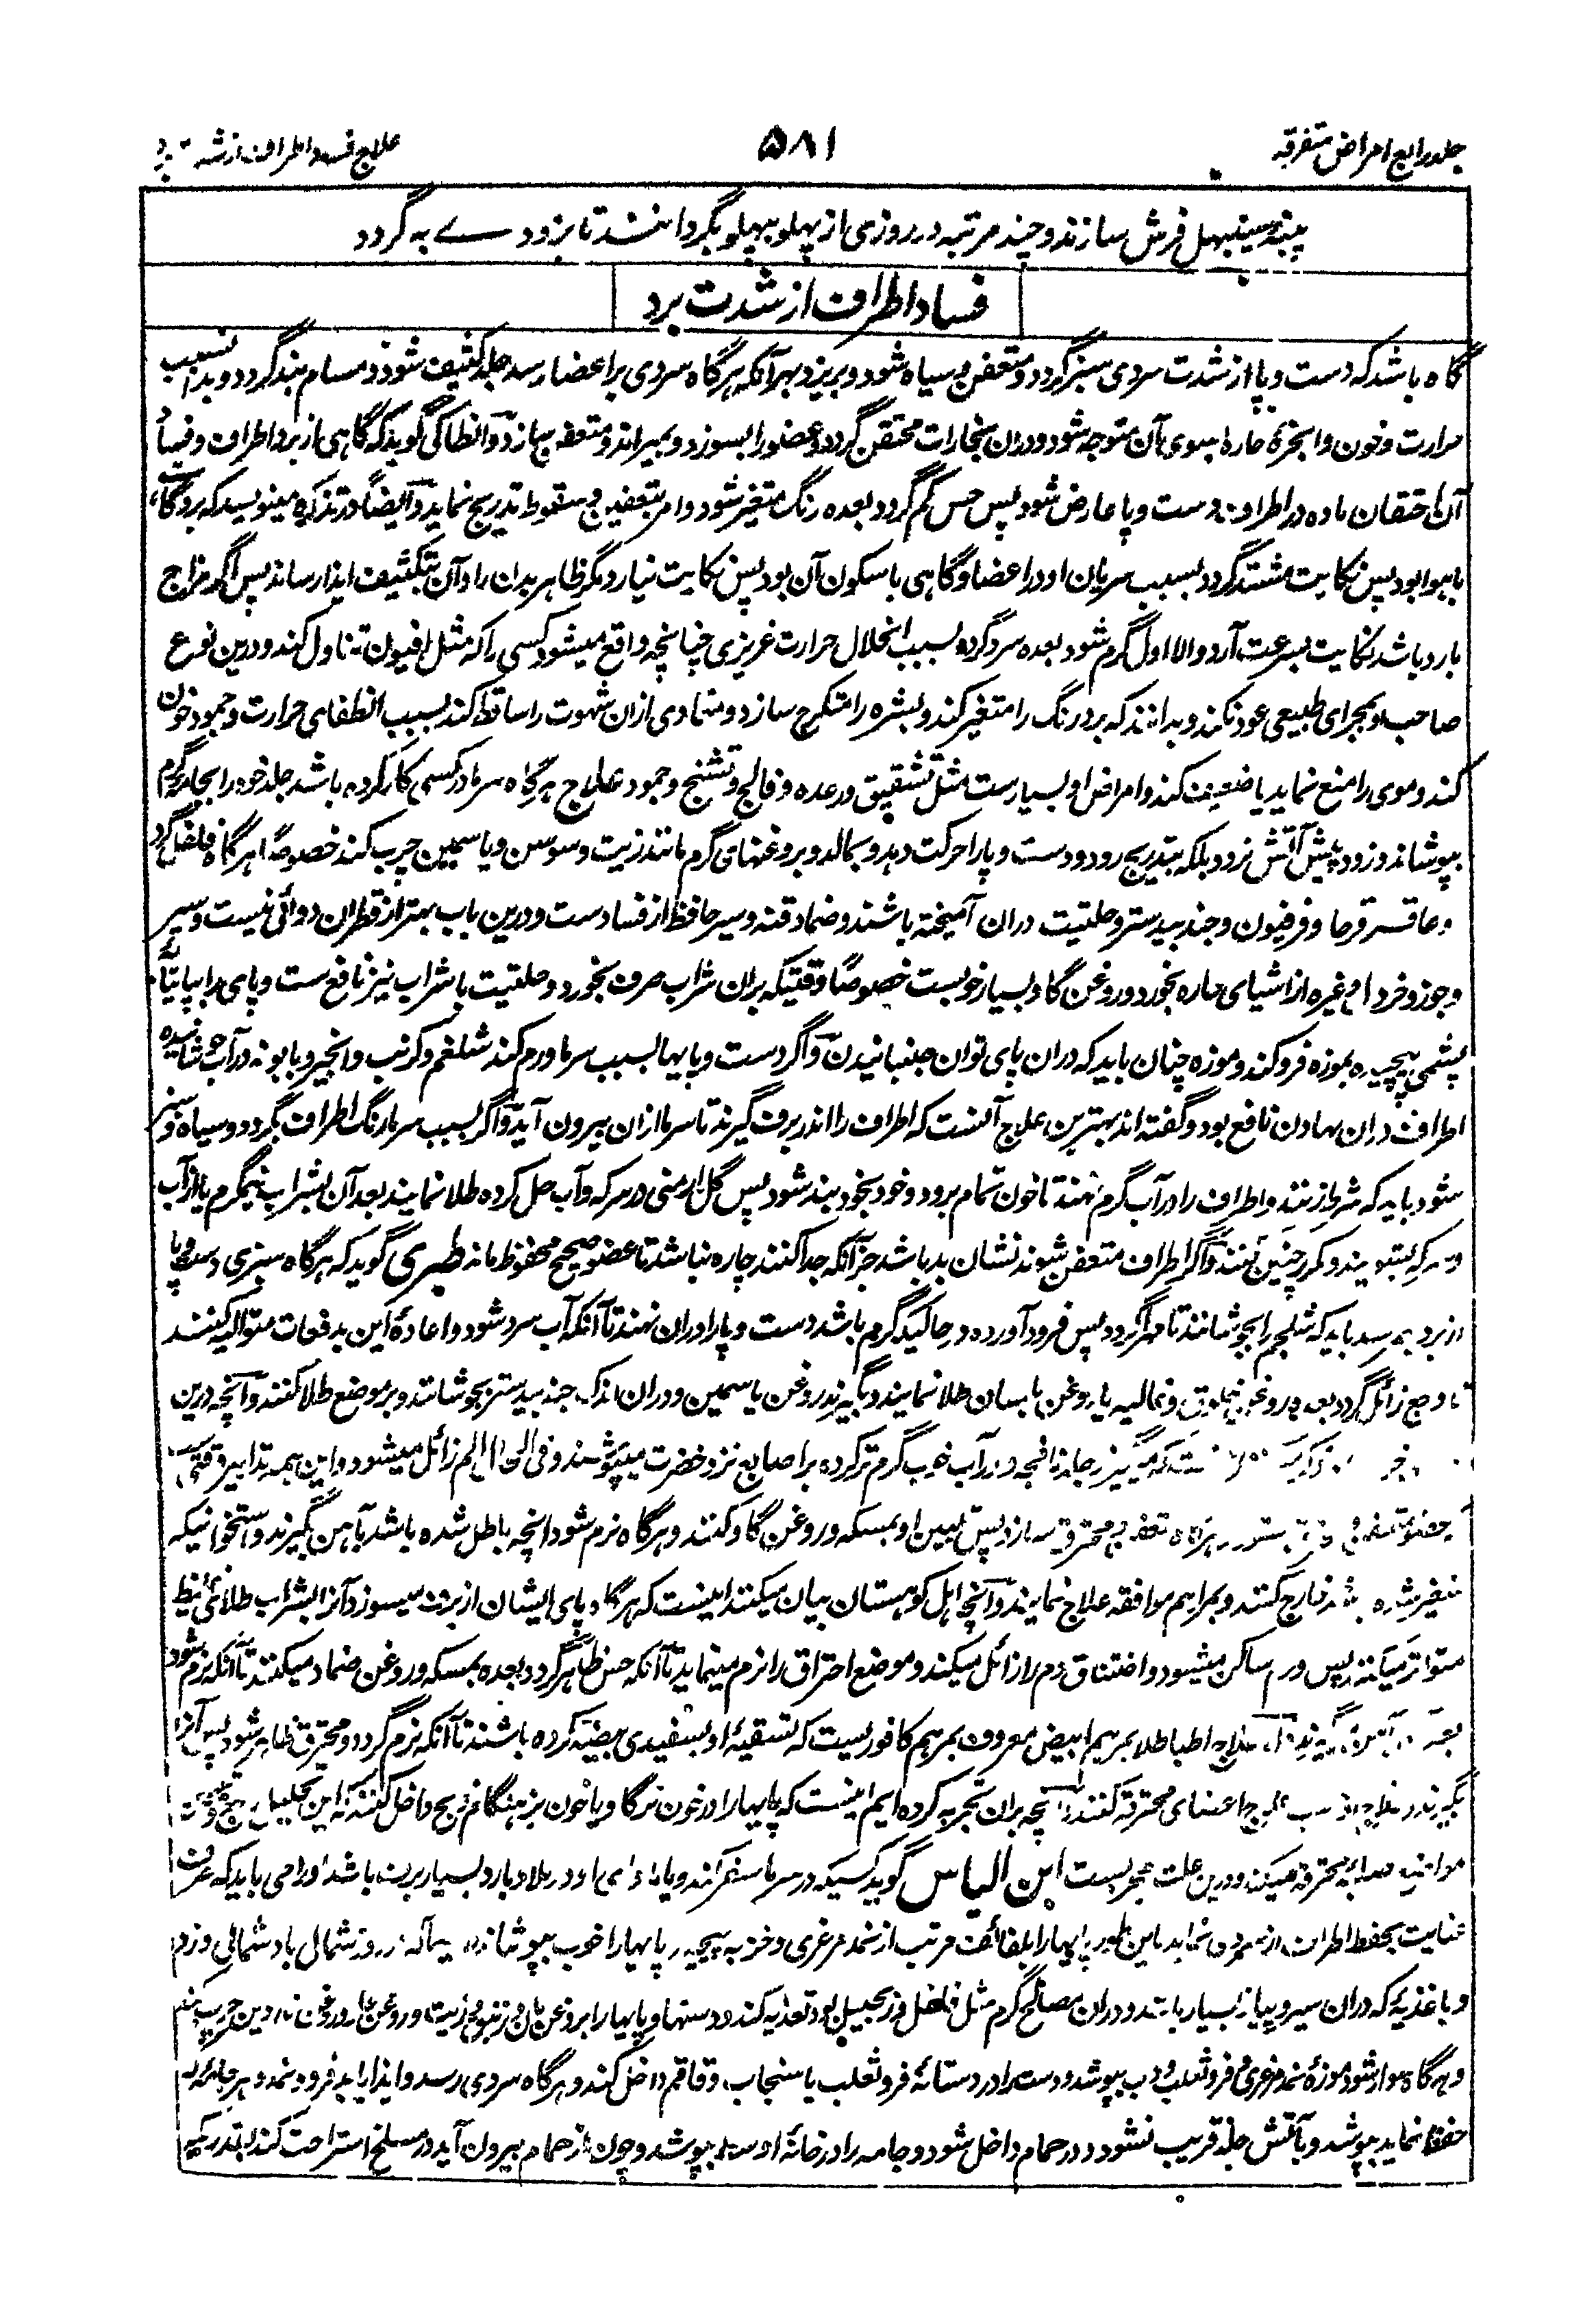 جلد رابع امراض متفرقه
۵۸۱
علاج فساد اطراف از شدت برد
پنبه سینبهل فرش سازند و چند مرتبه در روزی از پهلو بپهلو بگردانند تا بزودے به گردد
فساد اطراف از شدت برد
گاه باشد که دست و پا از شدت سردی سبز گردد و متعفن و سیاه شود و بریزد بهر آنکه هرگاه سردی بر اعضا رسد جلد کثیف شود و مسام بند گردد و بدانسبب
حرارت و خون و ابخرۀ حاره بسوی آن متوجه شود و دران بخارات محتقن گردد و عضو را بسوزد و بمیراند و متعفن سازد و انطاکی گوید که گاهی از برد اطراف و فساد
آن احتقان ماده در اطراف دست و پا عارض شود پس حس کم گردد بعده رنگ متغیر شود و امر بتعفین و سقوط بتدریج نماید و ایضاً در تذکره مینویسد که برد گاه
با هوا بود پس نکایت مشتد گردد بسبب سریان او در اعضا و گاهی با سکون آن بود پس نکایت نیارد مگر ظاهر بدن را و آن بتکثیف ایذا رساند پس اگر مزاج
بارد باشد نکایت بسرعت آرد والا اول گرم شود بعده سرد گردد بسبب انحلال حرارت غریزی چنانچه واقع میشود کسی را که مثل افیون تناول کند و درین نوع
صاحب او بمجرای طبیعی عود نکند و بدانند که برد رنگ را متغیر کند و بشره را متکرج سازد و متمادی ازان شهوت را ساقط کند بسبب انطفای حرارت و جمود خون
کند و موی را منع نماید یا ضعیف کند و امراض او بسیارست مثل تشقیق و رعده و فالج و تشنج و جمود علاج هرگاه سرما در کسی کار کرده باشد جلد خود را بجامه گرم
بپوشاند و زود پیش آتش نرود بلکه بتدریج رود و دست و پا را حرکت دهد و بمالد و بروغنهای گرم مانند زیت و سوسن و یاسمین چرب کند خصوصاً هرگاه فلفل گرد
و عاقرقرحا و فرفیون و جندبیدستر و حلتیت دران آمیخته باشند و ضماد قنه و سیر حافظ از فسادست و درین باب بهتر از قطران دوائی نیست و سیر
و جوز و خردل و غیره از اشیای حاره بخورد و روغن گاو بسیار خوبست خصوصاً وقتیکه بران شراب صرف بخورد و حلتیت با شراب نیز نافع ست و پای را بپایتابه
پشمی پیچیده بموزه فرو کند و موزه چنان باید که دران پای توان جنبانیدن و اگر دست و پایها بسبب سرما ورم کند شلغم و کرنب و انجیر و بابونه در آب جوشانیده
اطراف دران نهادن نافع بود و گفته اند بهترین علاج آنست که اطراف را اندر برف گیرند تا سرما ازان بیرون آید و اگر بسبب سرما رنگ اطراف بگردد و سیاه و سبز
شود باید که شرط زنند و اطراف را در آب گرم نهند تا خون تمام برود و خود بخود بند شود پس گل ارمنی در سرکه و آب حل کرده طلا نمایند بعد آن بشراب نیمگرم یا از آب
و سرکه بشویند و مکرر چنین کنند و اگر اطراف متعفن شوند نشان بد باشد جز آنکه جدا کنند چاره نباشد تا عضو صحیح محفوظ ماند طبری گوید که هرگاه سبزی دست و پا
از برد بهم رسد باید که شلجم را بجوشانند تا مهرا گردد پس فرود آورده در حالیکه گرم باشد دست و پا را دران نهند تا آنکه آب سرد شود و اعاده این بدفعات متوالیه کنند
تا وجع زائل گردد بعده روغن و غالیه یا روغن بابسان طلا نمایند و بگیرند روغن یاسمین و دران اندک جندبیدستر بجوشانند و بر موضع طلا کنند و آنچه درین
در آب خوب گرم تر کرده بر اصابع نزد خضرت میپوشند و فی الحال الم زائل میشود و این همه تدابیر وقتی ست
سازد پس تلیین او بمسکه و روغن گاو کنند و هرگاه نرم شود آنچه باطل شده باشد بآهن بگیرند و استخوانیکه
متغیر شده باشد خارج کنند و بمراهم موافقه علاج نمایند و آنچه اهل کوهستان بیان میکنند اینست که هرگاه پای ایشان از برف میسوزد آنرا بشراب طلائی غلیظ
متواتر میکنند پس ورم ساکن میشود و اختناق دم را زائل میکند و موضع احتراق را نرم مینماید تا آنکه حس ظاهر گردد بعده بمسکه و روغن ضماد میکنند تا آنکه نرم شود
علاج اطبا طلا بمرهم ابیض معروف بمرهم کافوریست که تسقیۀ او بسفیدی بیضه کرده باشند تا آنکه نرم گردد و محترق ظاهر شود پس آنرا
بگیرند و اعضای محترقه کنند و آنچه بران تجربه کرده ایم اینست که پایها را در خون نر گاو یا خون بز هنگام ذبح داخل کنند که این تحلیل
محترقه میکند و درین علت مجربست ابن الیاس گوید کسیکه در سرما سفر کند و یا در بلاد بارد بسیار برف باشد او را می باید که صرف
عنایت بحفظ اطراف از سردی نماید باین طور پایها را بلفائف مرتب از نمد مرغزی و خز به پیچید پایها را خوب بپوشاند در روز شمالی باد شمالی وزد
و باغذیه که دران سیر و پیاز بسیار باشد و دران مصالح گرم مثل فلفل و زنجبیل بود تغذیه کند و دستها و پایها را بروغن بان و زنبق و زیت و روغن و روغن ناردین چرب کند
و هرگاه سوار شود موزۀ نمد مرغزی و فرو ثعلب و دب بپوشد و دست را در دستانۀ فرو ثعلب یا سنجاب و قاقم داخل کند و هرگاه سردی رسد و ایذا یابد فرود
حفظ نماید بپوشد و بآتش جلد قریب نشود و در حمام داخل شود و جامه را در خانۀ اوسط بپوشد و چون از حمام بیرون آید در مسلخ استراحت کند بقدریکه